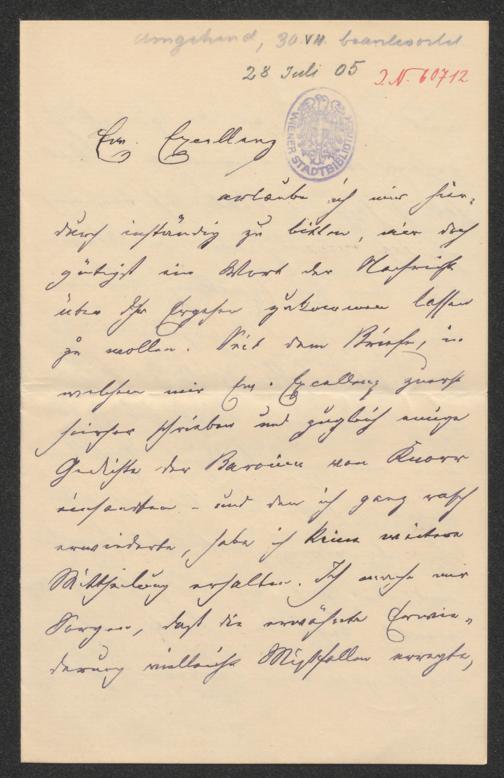 Umgehend, 30. VII. beantwortet
28 Juli 05
I.N. 60712
WIENER STADTBIBLIOTHEK
Ew. Excellenz
erlaube ich mir hier-
durch inständig zu bitten, mir doch
gütigst ein Wort der Nachricht
über Ihr Ergehen zukommen lassen
zu wollen. Seit dem Briefe, in
welchem mir Ew. Excellenz zuerst
hierher schrieben und zugleich einige
Gedichte der Baronin von Knorr
einsandten – und den ich ganz rasch
erwiederte, habe ich keine weitere
Mittheilung erhalten. Ich mache mir
Sorgen, daß die erwähnte Erwie-
derung vielleicht Mißfallen erregte,